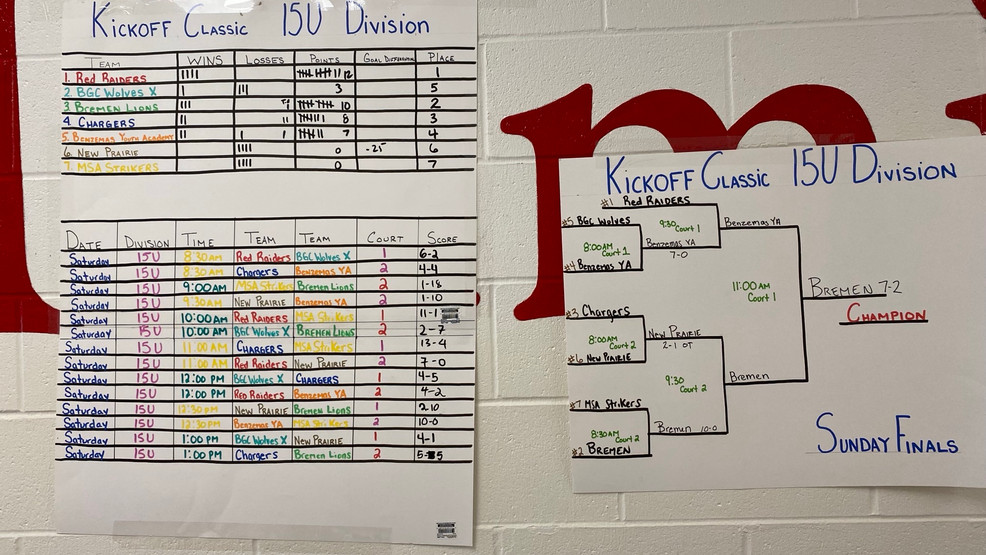 Kickoff Classic 15U Division
TEAM WINS LOSSES POINTS GOAL DIFFERENTIAL PLACE
1. Red RAIDERS IIII 12 1
2. BGC Wolves X I III 3 5
3. Bremen Lions III 10 2
4. CHARGERS II II 8 3
5. Benzemas Youth Academy II I I 7 4
6. New Prairie IIII 0 -25 6
7. MSA Strikers IIII 0 7
DATE DIVISION TIME TEAM TEAM COURT SCORE
Saturday 15U 8:30AM Red Raiders BGC Wolves X 1 6-2
Saturday 15U 8:30AM Chargers Benzemas YA 2 4-4
Saturday 15U 9:00AM MSA Strikers Bremen Lions 2 1-18
Saturday 15U 9:30AM New Prairie Benzemas YA 2 1-10
Saturday 15U 10:00AM Red Raiders MSA Strikers 1 11-1
Saturday 15U 10:00AM BGC Wolves X Bremen Lions 2 2-7
Saturday 15U 11:00AM CHARGERS MSA Strikers 1 13-4
Saturday 15U 11:00AM Red Raiders New Prairie 2 7-0
Saturday 15U 12:00 PM BGC Wolves X CHARGERS 1 4-5
Saturday 15U 12:00 PM Red Raiders Benzemas YA 2 4-2
Saturday 15U 12:30 PM New Prairie Bremen Lions 1 2-10
Saturday 15U 12:30 PM Benzemas YA MSA Strikers 2 10-0
Saturday 15U 1:00 PM BGC Wolves X New Prairie 1 4-1
Saturday 15U 1:00 PM Chargers Bremen Lions 2 5-5
m
Kickoff Classic 15U Division
#1 Red RAIDERS
#5 BGC Wolves
9:30 Court 1
Benzemas YA
8:00AM Court 1
Benzemas YA
7-0
#4 Benzemas YA
11:00 AM
Court 1
BREMEN 7-2
CHAMPION
#3 Chargers
8:00AM Court 2
New Prairie
2-1 OT
#6 New Prairie
9:30
Court 2
Bremen
#7 MSA Strikers
8:30AM Court 2
Bremen 10-0
#2 BREMEN
Sunday Finals